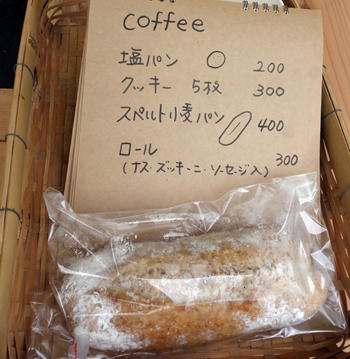 coffee
塩パン 200
クッキー 5枚 300
スペルト小麦パン 400
ロール
(ナス・ズッキーニ・ソーセージ入) 300